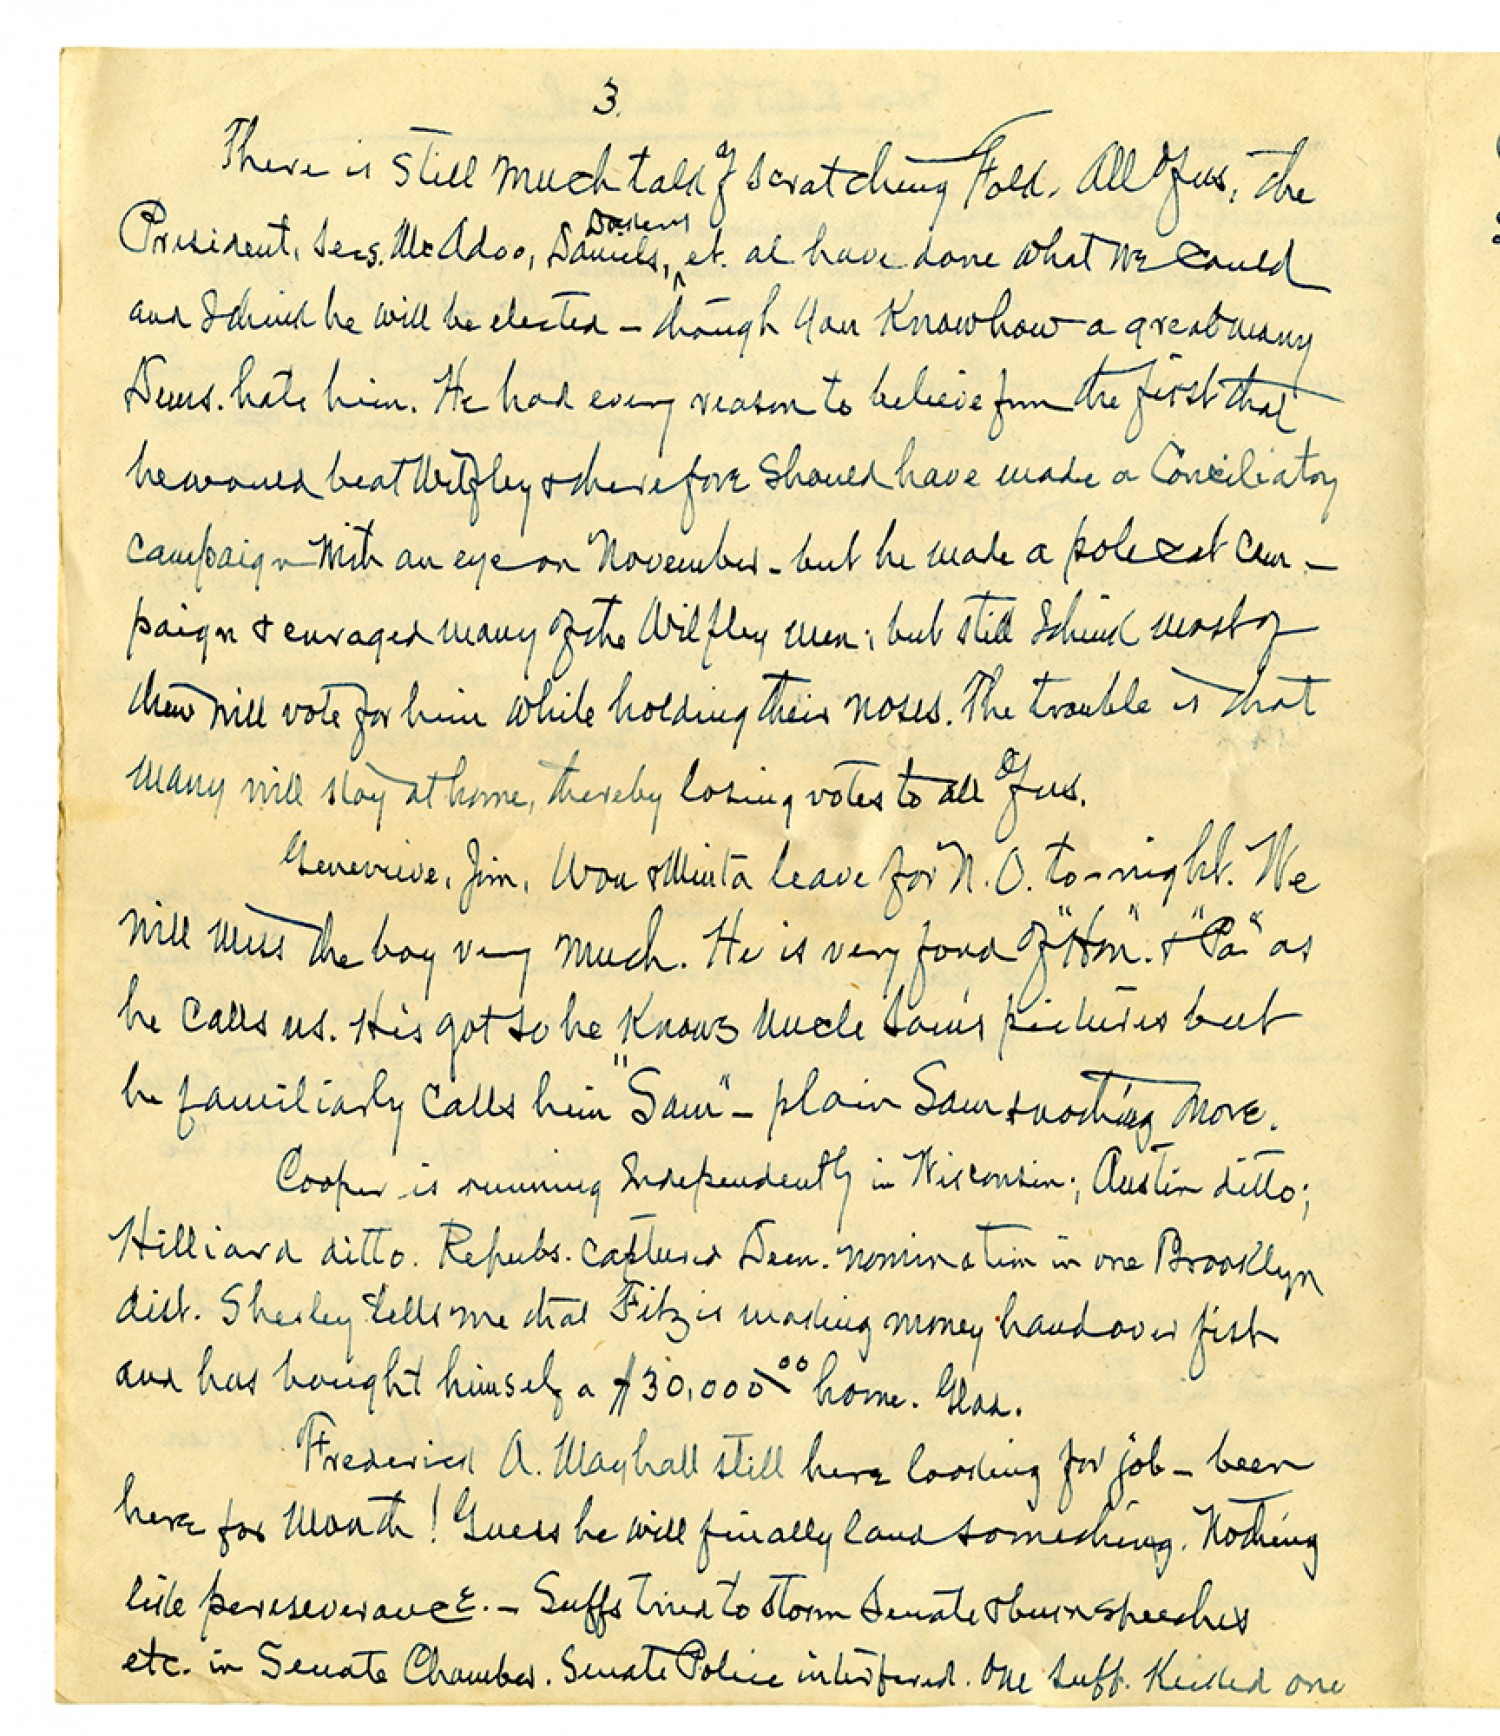 3.
There is still much talk of scratching Folk. All of us, the
President, Secs. McAdoo, Daniels, Dockery et. al have done what we could
and I think he will be elected – though you know how a great many
Dems. hate him. He had every reason to believe from the first that
he would beat Wilfley & therefore should have made a conciliatory
campaign with an eye on November – but he made a polecat cam-
paign & enraged many of the Wilfley men; but still I think most of
them will vote for him while holding their noses. The trouble is that
many will stay at home, thereby losing votes to all of us.
Genevieve, Jim, & leave for N. O. to-night. We
will miss the boy very much. He is very fond of "Hon". & "Pa" as
he calls us. He's got so he knows Uncle Sam's pictures but
he familiarly calls him "Sam" – plain Sam & nothing more.
Cooper is running Independently in Wisconsin; Austin ditto;
Hilliard ditto. Repubs. captured Dem. nomination in one Brooklyn
dist. Sherley tells me that Fitz is making money hand over fist
and has bought himself a $30,000.00 home. Glad.
Frederick A. Mayhall still here looking for job – been
here for month! Guess he will finally land something. Nothing
like pereseverance. – Suffs tried to storm Senate & burn speeches
etc. in Senate Chamber. Senate Police interfered. One Suff. kicked one